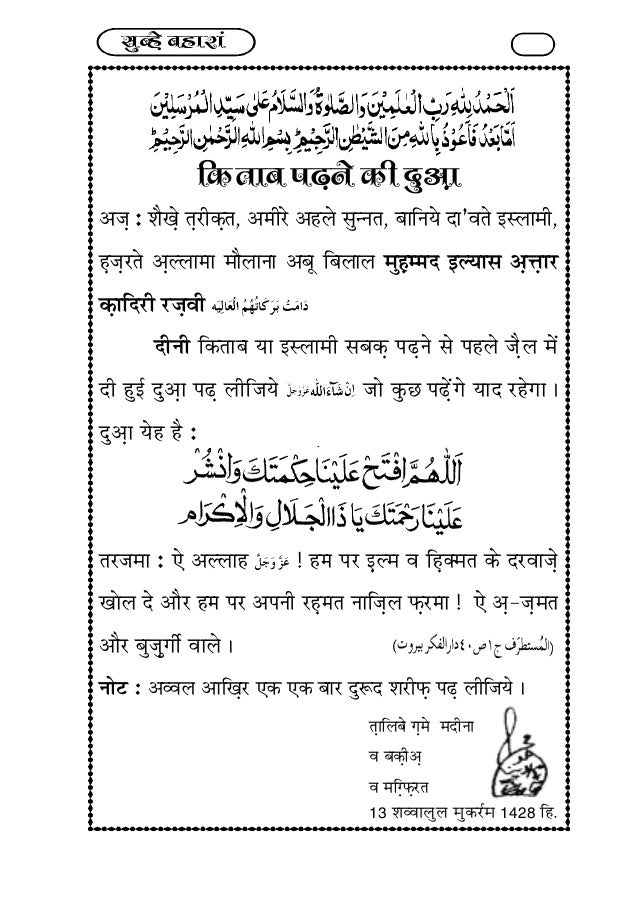 सुब्हे बहारां
اَلْحَمْدُ لِلّٰهِ رَبِّ الْعٰلَمِيْنَ وَالصَّلٰوةُ وَالسَّلَامُ عَلٰى سَيِّدِ الْمُرْسَلِيْنَ
اَمَّا بَعْدُ فَاَعُوْذُ بِاللّٰهِ مِنَ الشَّيْطٰنِ الرَّجِيْمِ ؕ بِسْمِ اللّٰهِ الرَّحْمٰنِ الرَّحِيْمِ ؕ
किताब पढ़ने की दुआ़
अज़ : शैख़े त़रीक़त, अमीरे अहले सुन्नत, बानिये दा'वते इस्लामी,
ह़ज़रते अ़ल्लामा मौलाना अबू बिलाल मुह़म्मद इल्यास अ़त्त़ार
क़ादिरी रज़वी دَامَتْ بَرَكَاتُهُمُ الْعَالِيَه
दीनी किताब या इस्लामी सबक़ पढ़ने से पहले ज़ैल में
दी हुई दुआ़ पढ़ लीजिये اِنْ شَآءَ اللّٰه عَزَّوَجَلَّ जो कुछ पढ़ेंगे याद रहेगा ।
दुआ़ येह है :
اَللّٰهُمَّ افْتَحْ عَلَيْنَا حِكْمَتَكَ وَانْشُرْ
عَلَيْنَا رَحْمَتَكَ يَا ذَا الْجَلَالِ وَالْاِكْرَام
तरजमा : ऐ अल्लाह عَزَّوَجَلَّ ! हम पर इ़ल्म व ह़िक्मत के दरवाज़े
खोल दे और हम पर अपनी रह़मत नाज़िल फ़रमा ! ऐ अ़-ज़मत
और बुज़ुर्गी वाले । (المُستطرَف ج ١ ص ٤٠ دارالفكر بيروت)
नोट : अव्वल आख़िर एक एक बार दुरूद शरीफ़ पढ़ लीजिये ।
त़ालिबे ग़मे मदीना
व बक़ीअ़
व मग़्फ़िरत
13 शव्वालुल मुकर्रम 1428 हि.